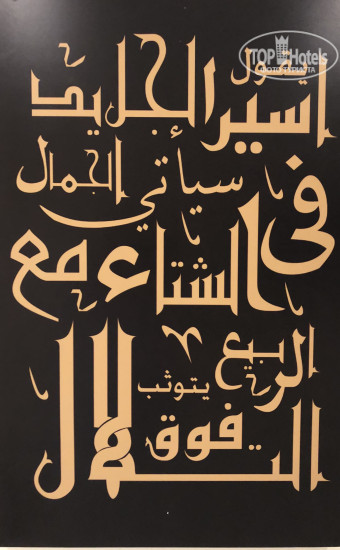 TOP Hotels
يقول
أسير الجليد
سيأتي الجمال
في الشتاء مع
الربيع
يتوثب
فوق
التلال